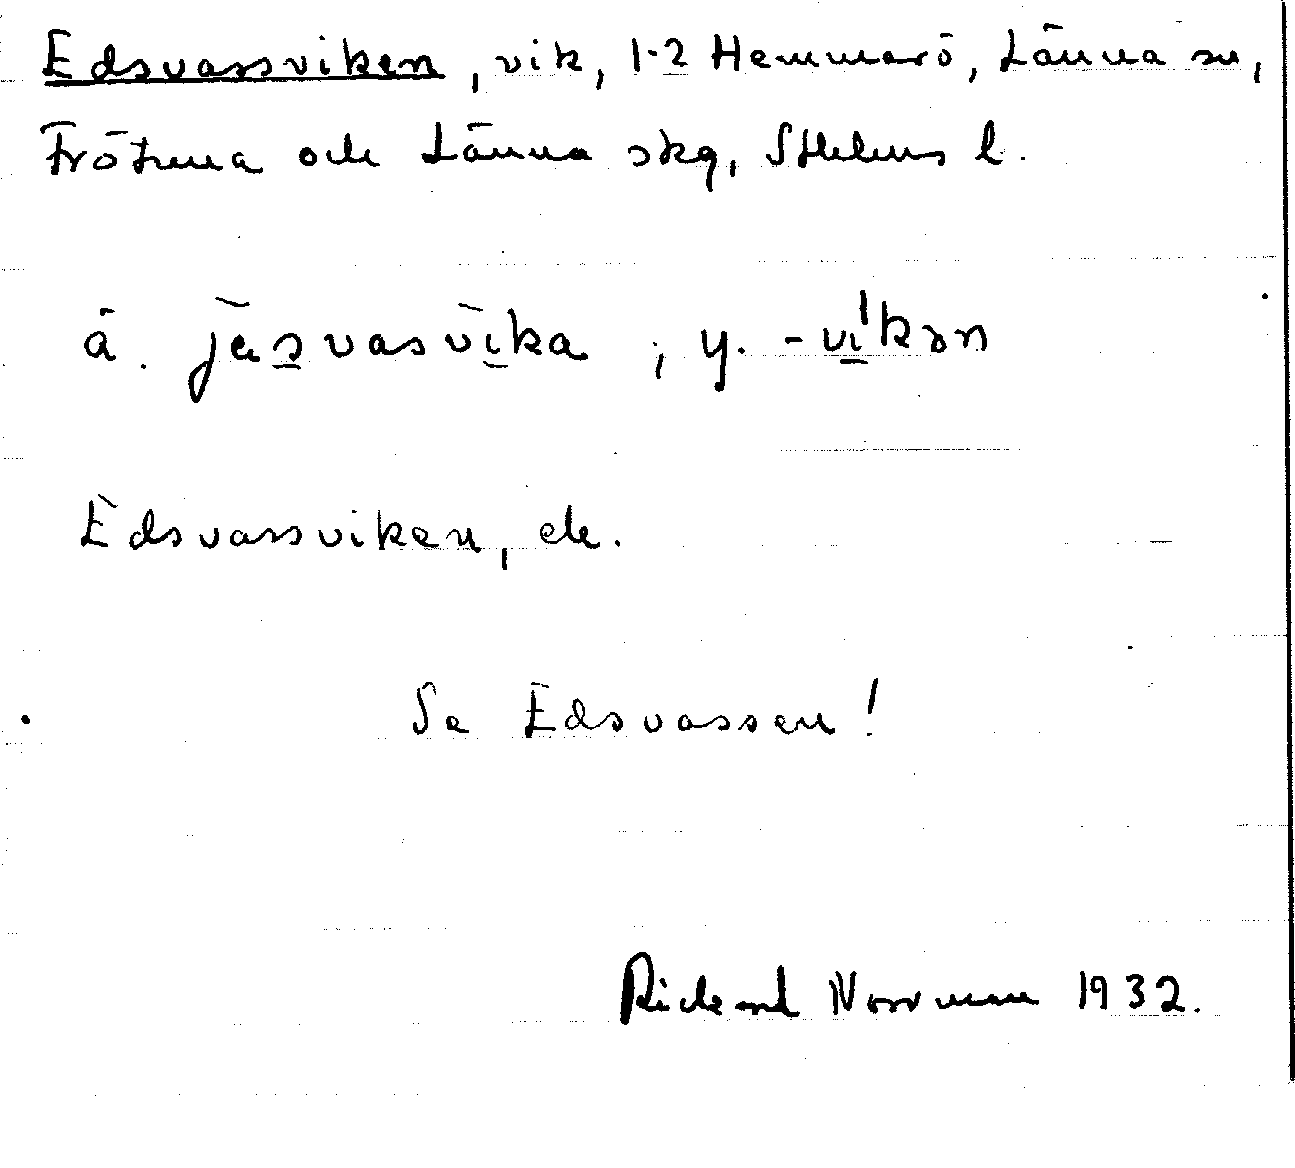 Edsvassviken, vik, 1-2 Hemmarö, Länna sn,
Frötuna och Länna skg, Sthlms l.
ä. jäsvasvika, y. -vikən
Edsvassviken, ek.
Se Edsvassen!
Rickard Norrman 1932.